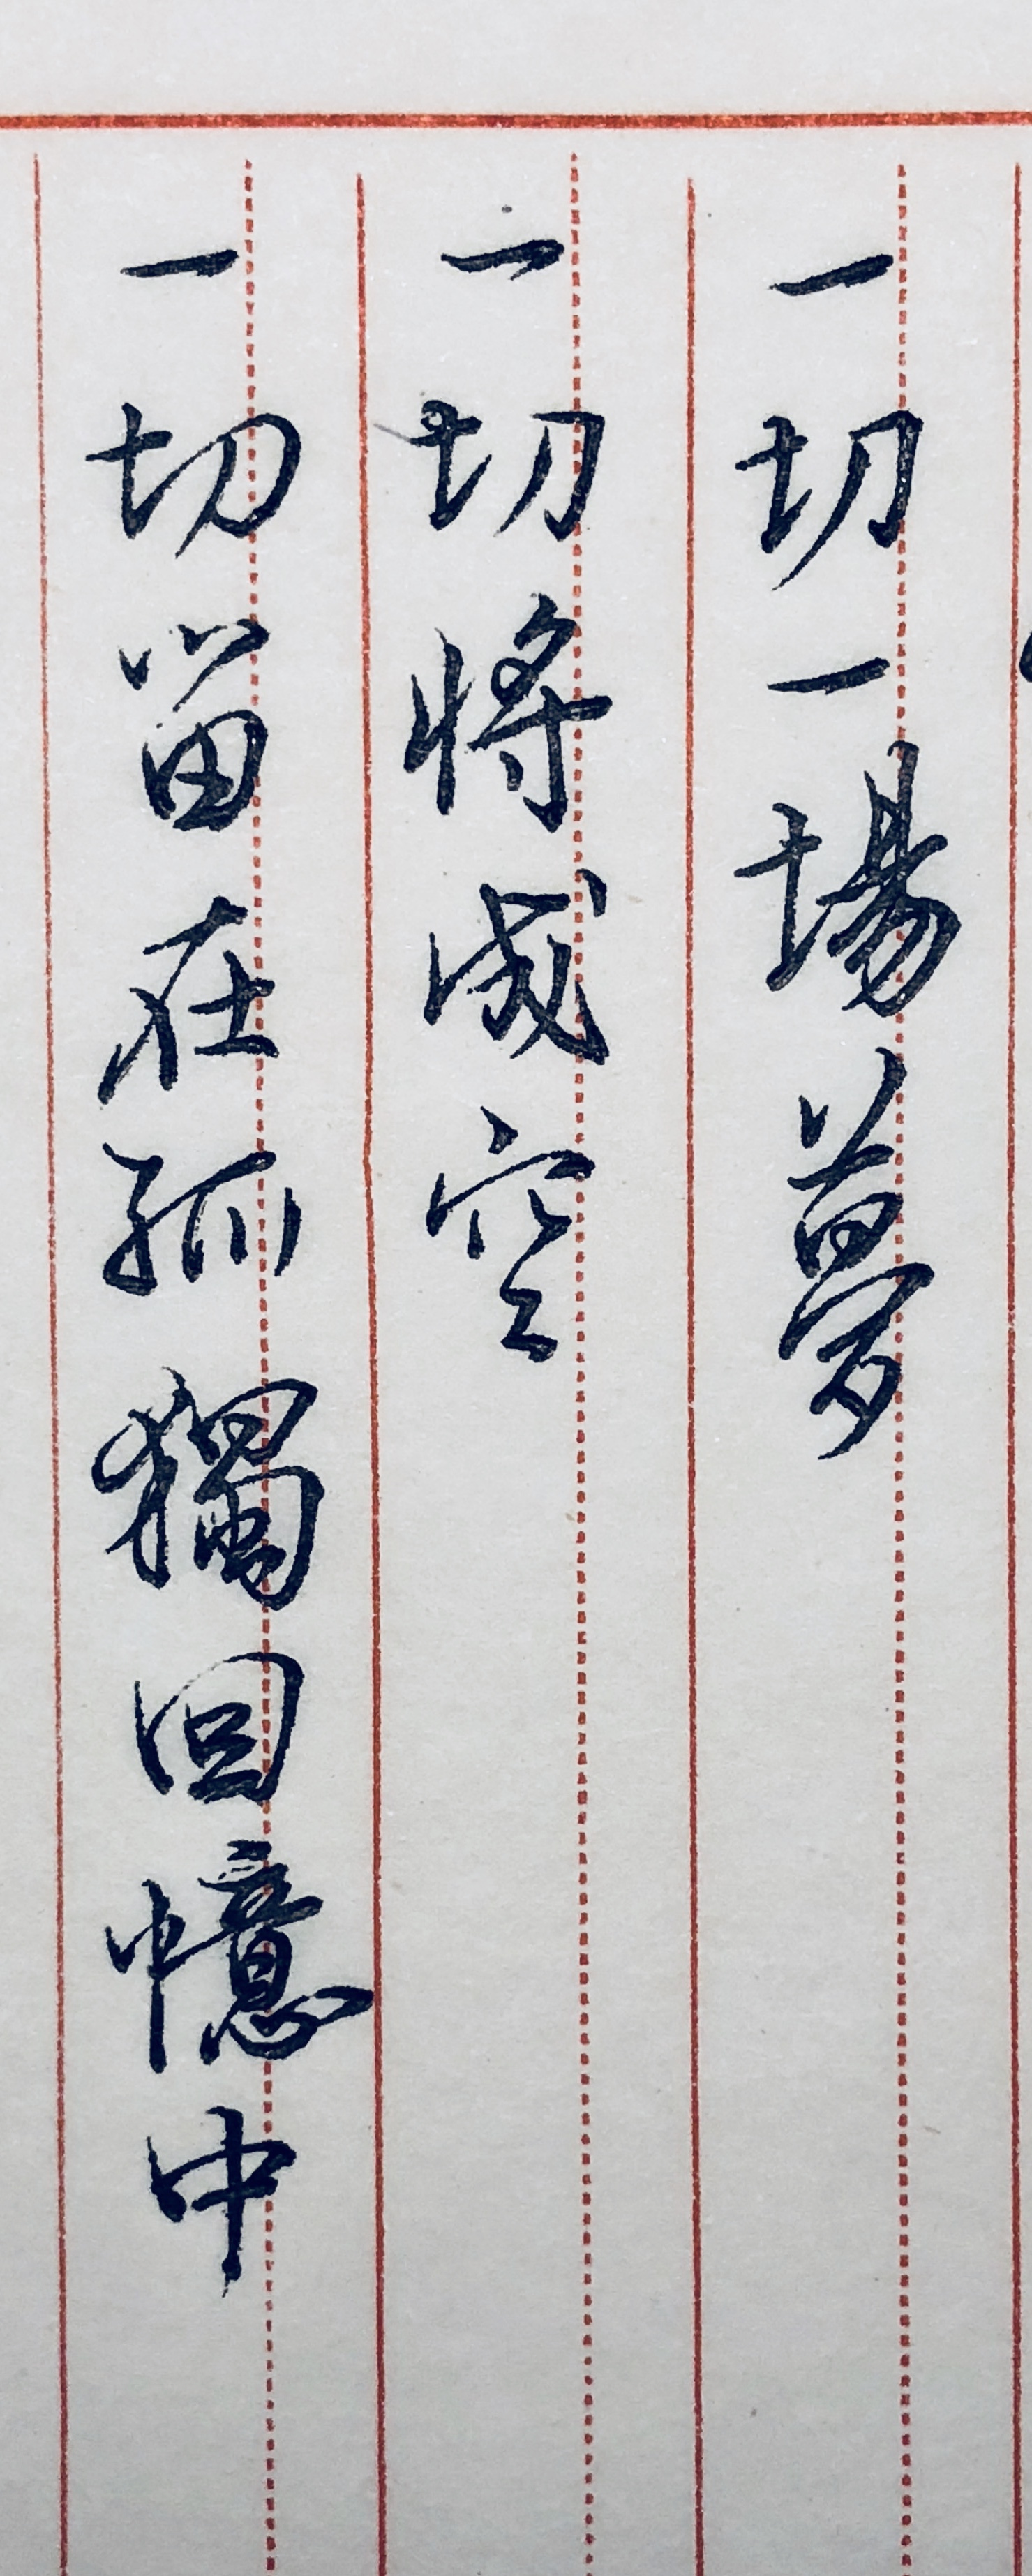 一切一場夢
一切將成空
一切留在孤獨回憶中